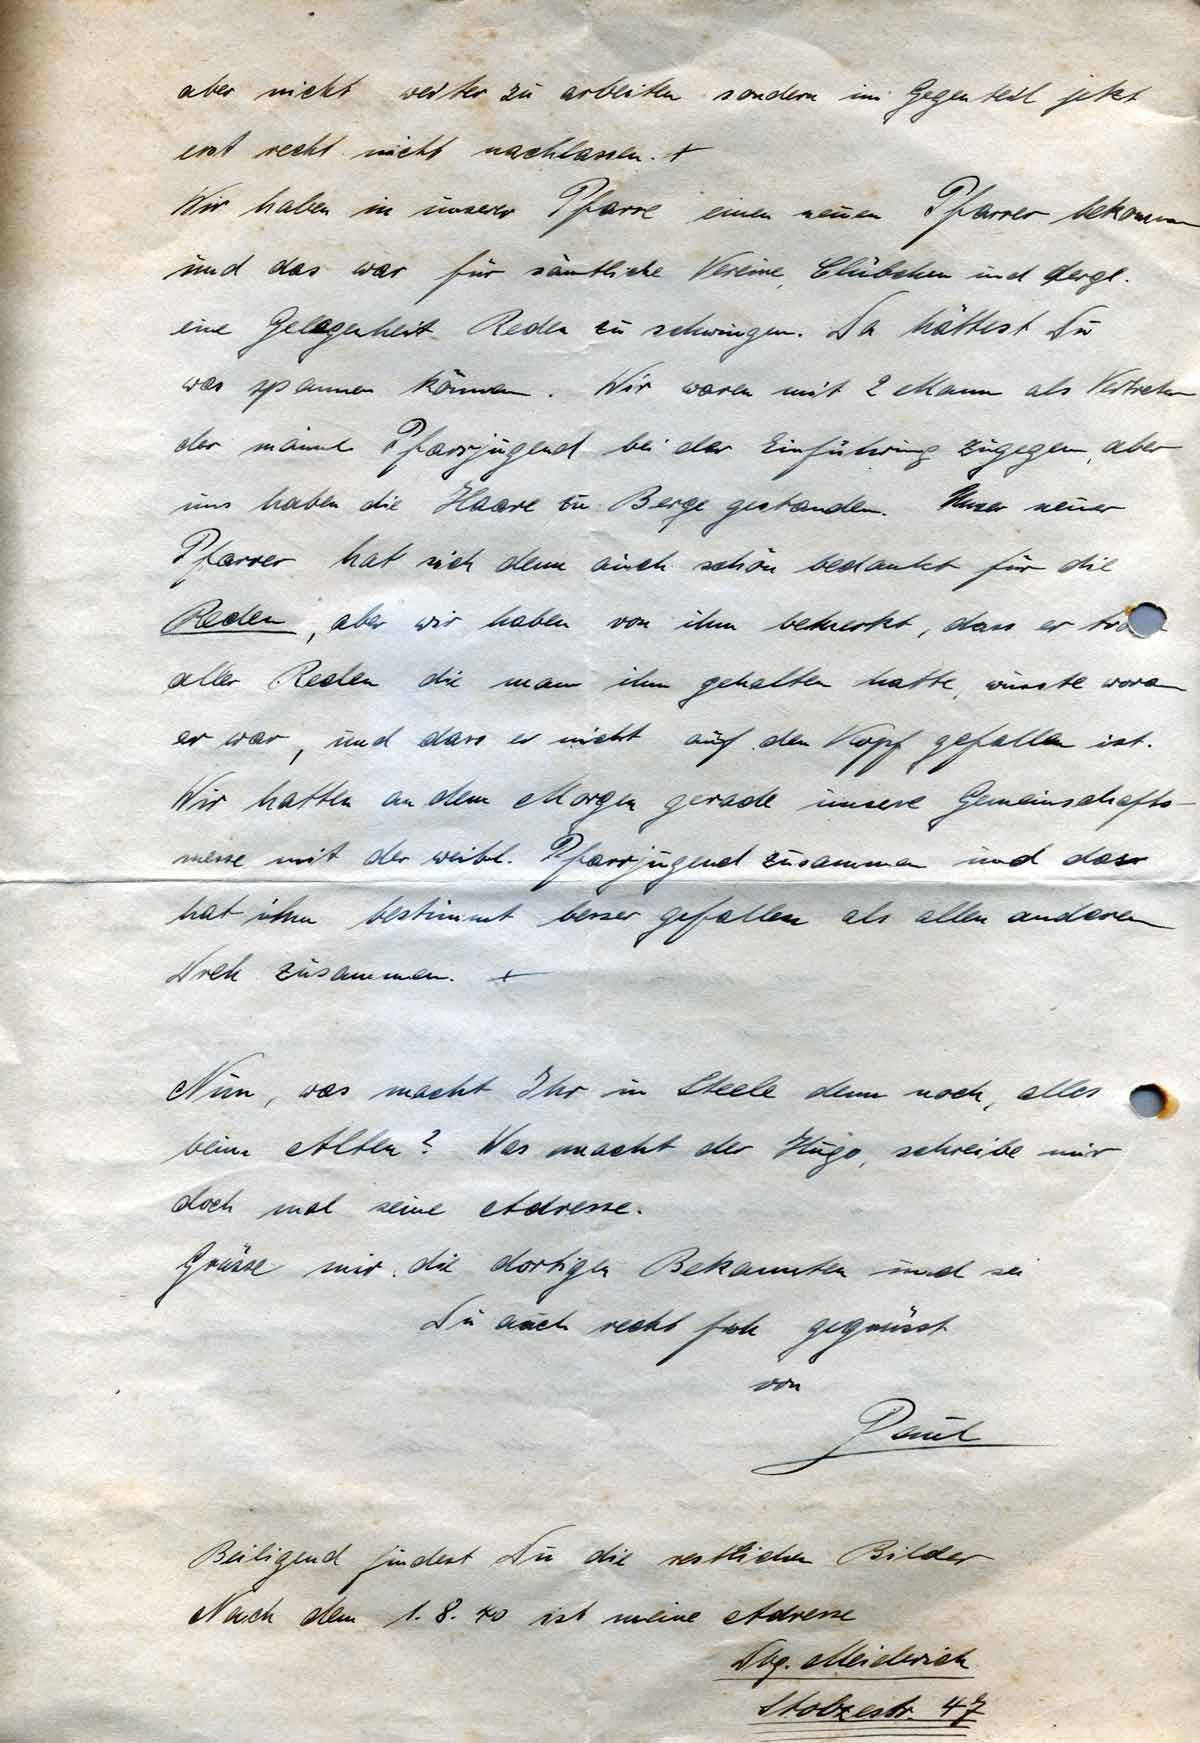 aber nicht weiter zu arbeiten sondern im Gegenteil jetzt
erst recht nicht nachlassen. +
Wir haben in unserer Pfarre einen neuen Pfarrer bekommen
und das war für sämtliche Vereine, Clübchen und dergl.
eine Gelegenheit Reden zu schwingen. Da hättest Du
was spannen können. Wir waren mit 2 Mann als Vertreter
der männl Pfarrjugend bei der Einführung zugegen, aber
uns haben die Haare zu Berge gestanden. Unser neuer
Pfarrer hat sich denn auch schön bedankt für die
Reden, aber wir haben von ihm bemerkt, dass er trotz
aller Reden die man ihm gehalten hatte, wusste woran
er war, und dass er nicht auf den Kopf gefallen ist.
Wir hatten an dem Morgen gerade unsere Gemeinschafts-
messe mit der weibl. Pfarrjugend zusammen und dass
hat ihm bestimmt besser gefallen als allen anderen
Dreh zusammen. +
Nun, was macht Ihr in Steele denn noch, alles
beim Alten? Was macht der Hugo, schreibe mir
doch mal seine Adresse.
Grüsse mir die dortigen Bekannten und sei
Du auch recht froh gegrüsst
von
Paul
Beiligend findest Du die restlichen Bilder
Nach dem 1.8.40 ist meine Adresse
Dbg. Meiderich
Stolzestr. 47